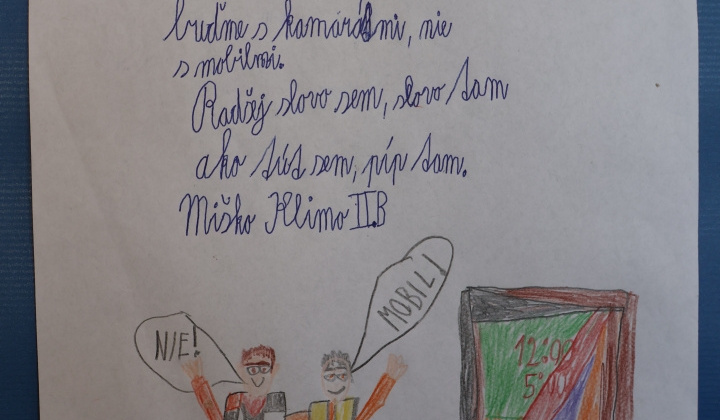 buďme s kamarátmi, nie
s mobilmi.
Radšej slovo sem, slovo tam
ako tút sem, píp tam.
Miško Klimo II.B
NIE!
MOBIL!
12:00
5:00